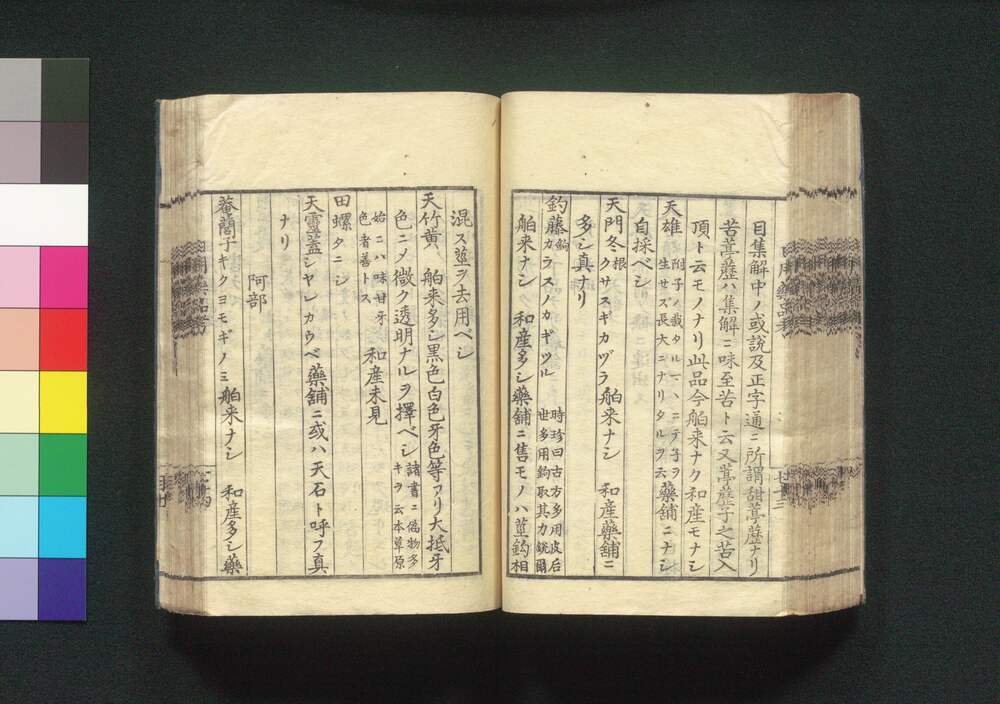 目集解中ノ或說及正字通ニ所謂甜葶藶ナリ
苦葶藶ハ集解ニ味至苦ト云又葶藶子之苦入
頂ト云モノナリ此品今舶来ナク和産モナシ
天雄 附子ノ栽タル一ハニテ子ヲ
生セズ長大ニナリタルヲ云
藥舗ニナシ
自採ベシ
天門冬 根
クサスギカヅラ 舶来ナシ 和産藥舗ニ
多シ真ナリ
釣藤 鈎
カラスノカギツル
時珍曰古方多用皮后
世多用鈎取其力銳爾
舶来ナシ 和産多シ藥舗ニ售モノハ莖鈎相
混ス莖ヲ去用ベシ
天竹黄 舶来多シ黒色白色牙色等アリ大抵牙
色ニメ微ク透明ナルヲ擇ベシ
諸書ニ偽物多
キヲ云本草原
始ニハ味甘牙
色者善トス
和産未見
田螺 タニシ
天靈蓋 シヤレカウベ 藥舗ニ或ハ天石ト呼フ真
ナリ
阿部
菴䕡子 キクヨモギノミ 舶来ナシ 和産多シ藥